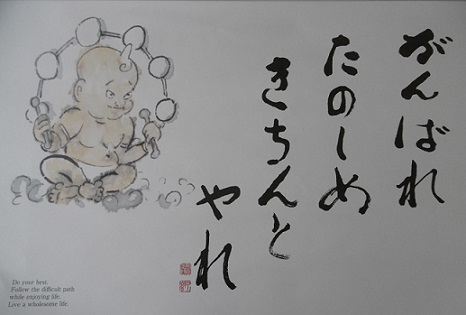 がんばれ
たのしめ
きちんと
やれ
Do your best.
Follow the difficult path
while enjoying life
Live a wholesome life.